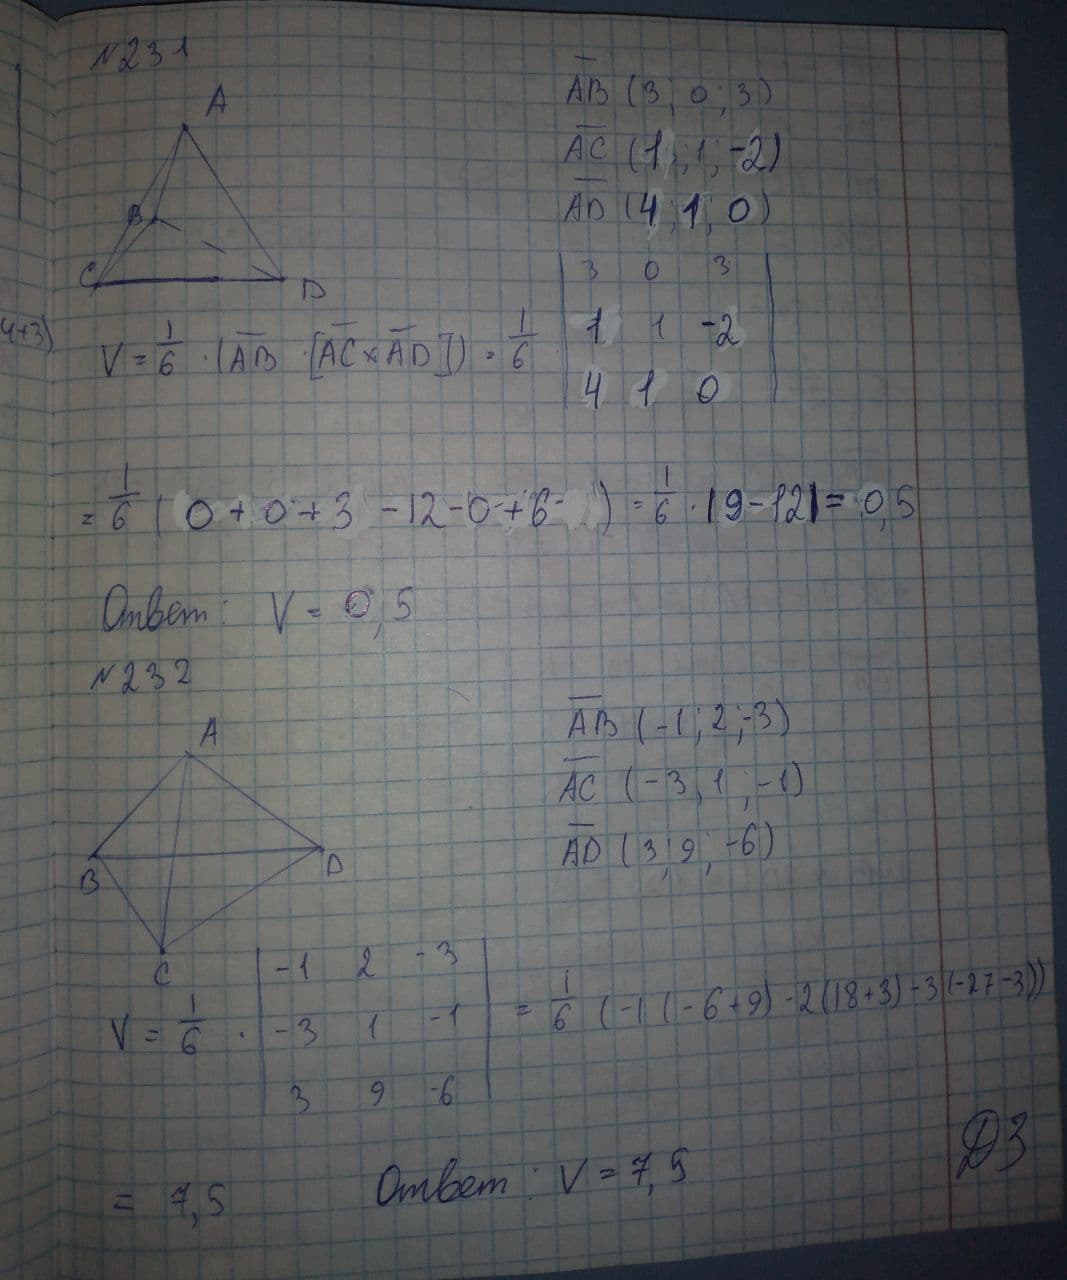 N231
A
B
C
D
AB (3; 0; 3)
AC (1; 1; -2)
AD (4; 1; 0)
4+3)
V = 1/6 · (AB · [AC × AD]) = 1/6 | 3 0 3 |
| 1 1 -2 |
| 4 1 0 |
= 1/6 (0+0+3 -12-0+6) = 1/6 · |9-12| = 0,5
Ответ: V = 0,5
N232
A
B
D
C
AB (-1; 2; -3)
AC (-3; 1; -1)
AD (3; 9; -6)
V = 1/6 · | -1 2 -3 |
| -3 1 -1 |
| 3 9 -6 |
= 1/6 (-1(-6+9) -2(18+3) -3(-27-3))
= 7,5 Ответ: V = 7,5
ДЗ